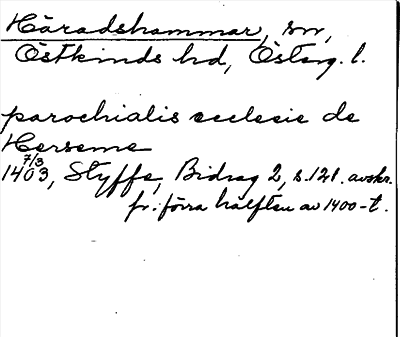 Häradshammar, sn,
Östkinds hd, Österg. l.
parochialis ecclesie de
Herseme
7/3
1403, Styffe, Bidrag 2, s. 121. avskr.
fr. förra hälften av 1400-t.